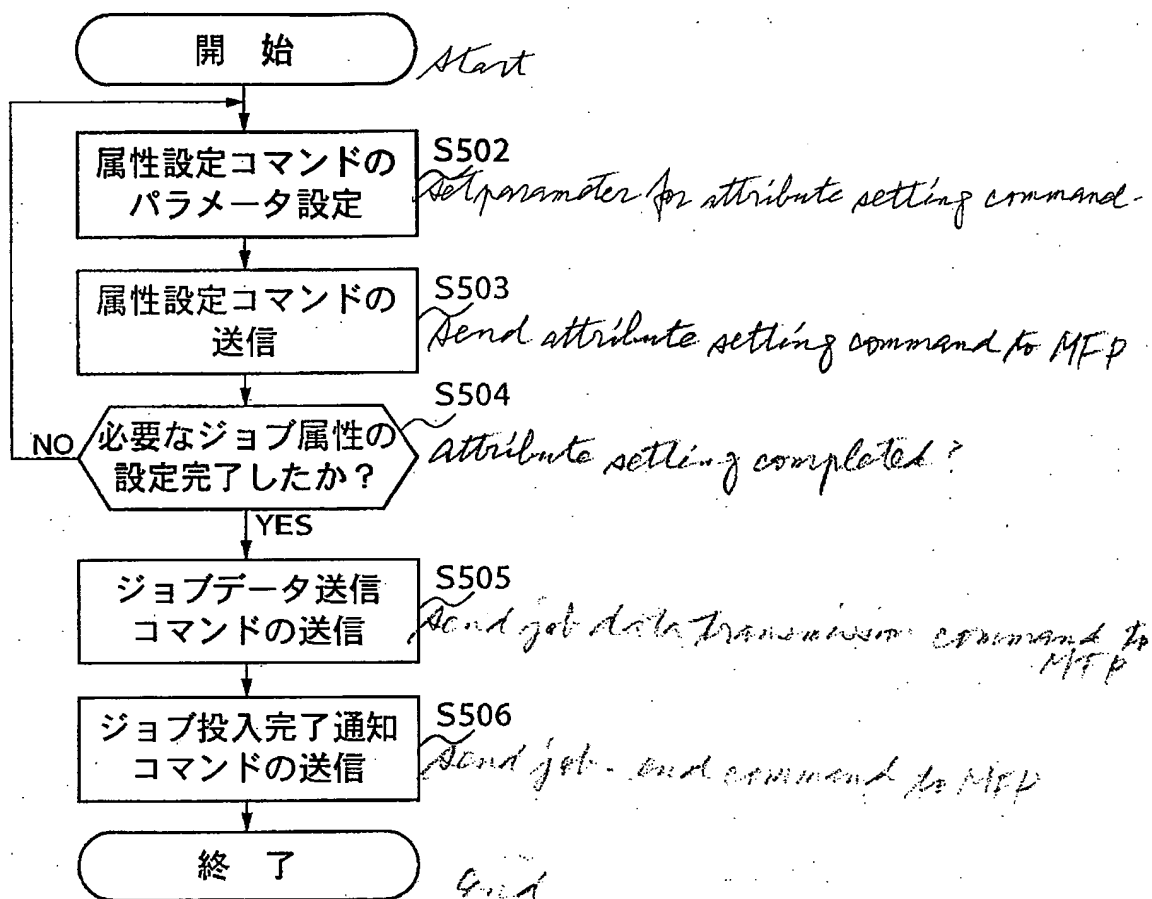 開 始
Start
属性設定コマンドの
パラメータ設定
S502
set parameter for attribute setting command.
属性設定コマンドの
送信
S503
Send attribute setting command to MFP
必要なジョブ属性の
設定完了したか？
S504
NO
attribute setting completed?
YES
ジョブデータ送信
コマンドの送信
S505
Send job data transmission command to
MFP
ジョブ投入完了通知
コマンドの送信
S506
Send job-end command to MFP
終 了
End